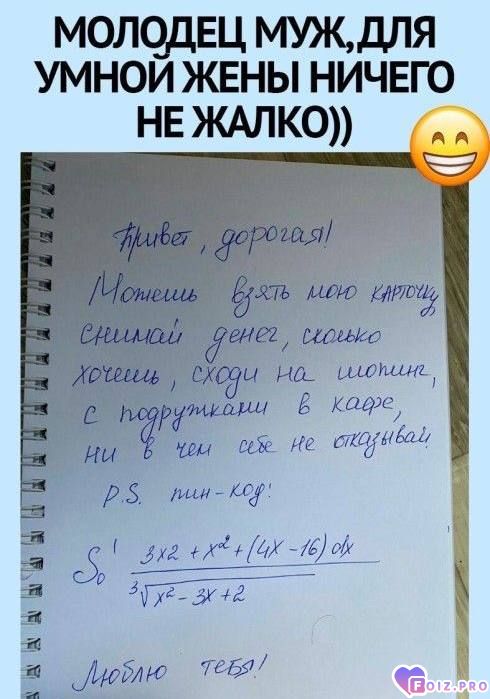 МОЛОДЕЦ МУЖ,ДЛЯ
УМНОЙ ЖЕНЫ НИЧЕГО
НЕ ЖАЛКО))
Привет, дорогая!
Можешь взять мою карточку
снимай денег, сколько
хочешь, сходи на шопинг,
с подружками в кафе,
ни в чем себе не отказывай
P.S. пин-код:
∫₀¹ 3x2 + x² + (4x - 16) dx
∛x² - 3x + 2
Люблю тебя!
FOIZ.PRO